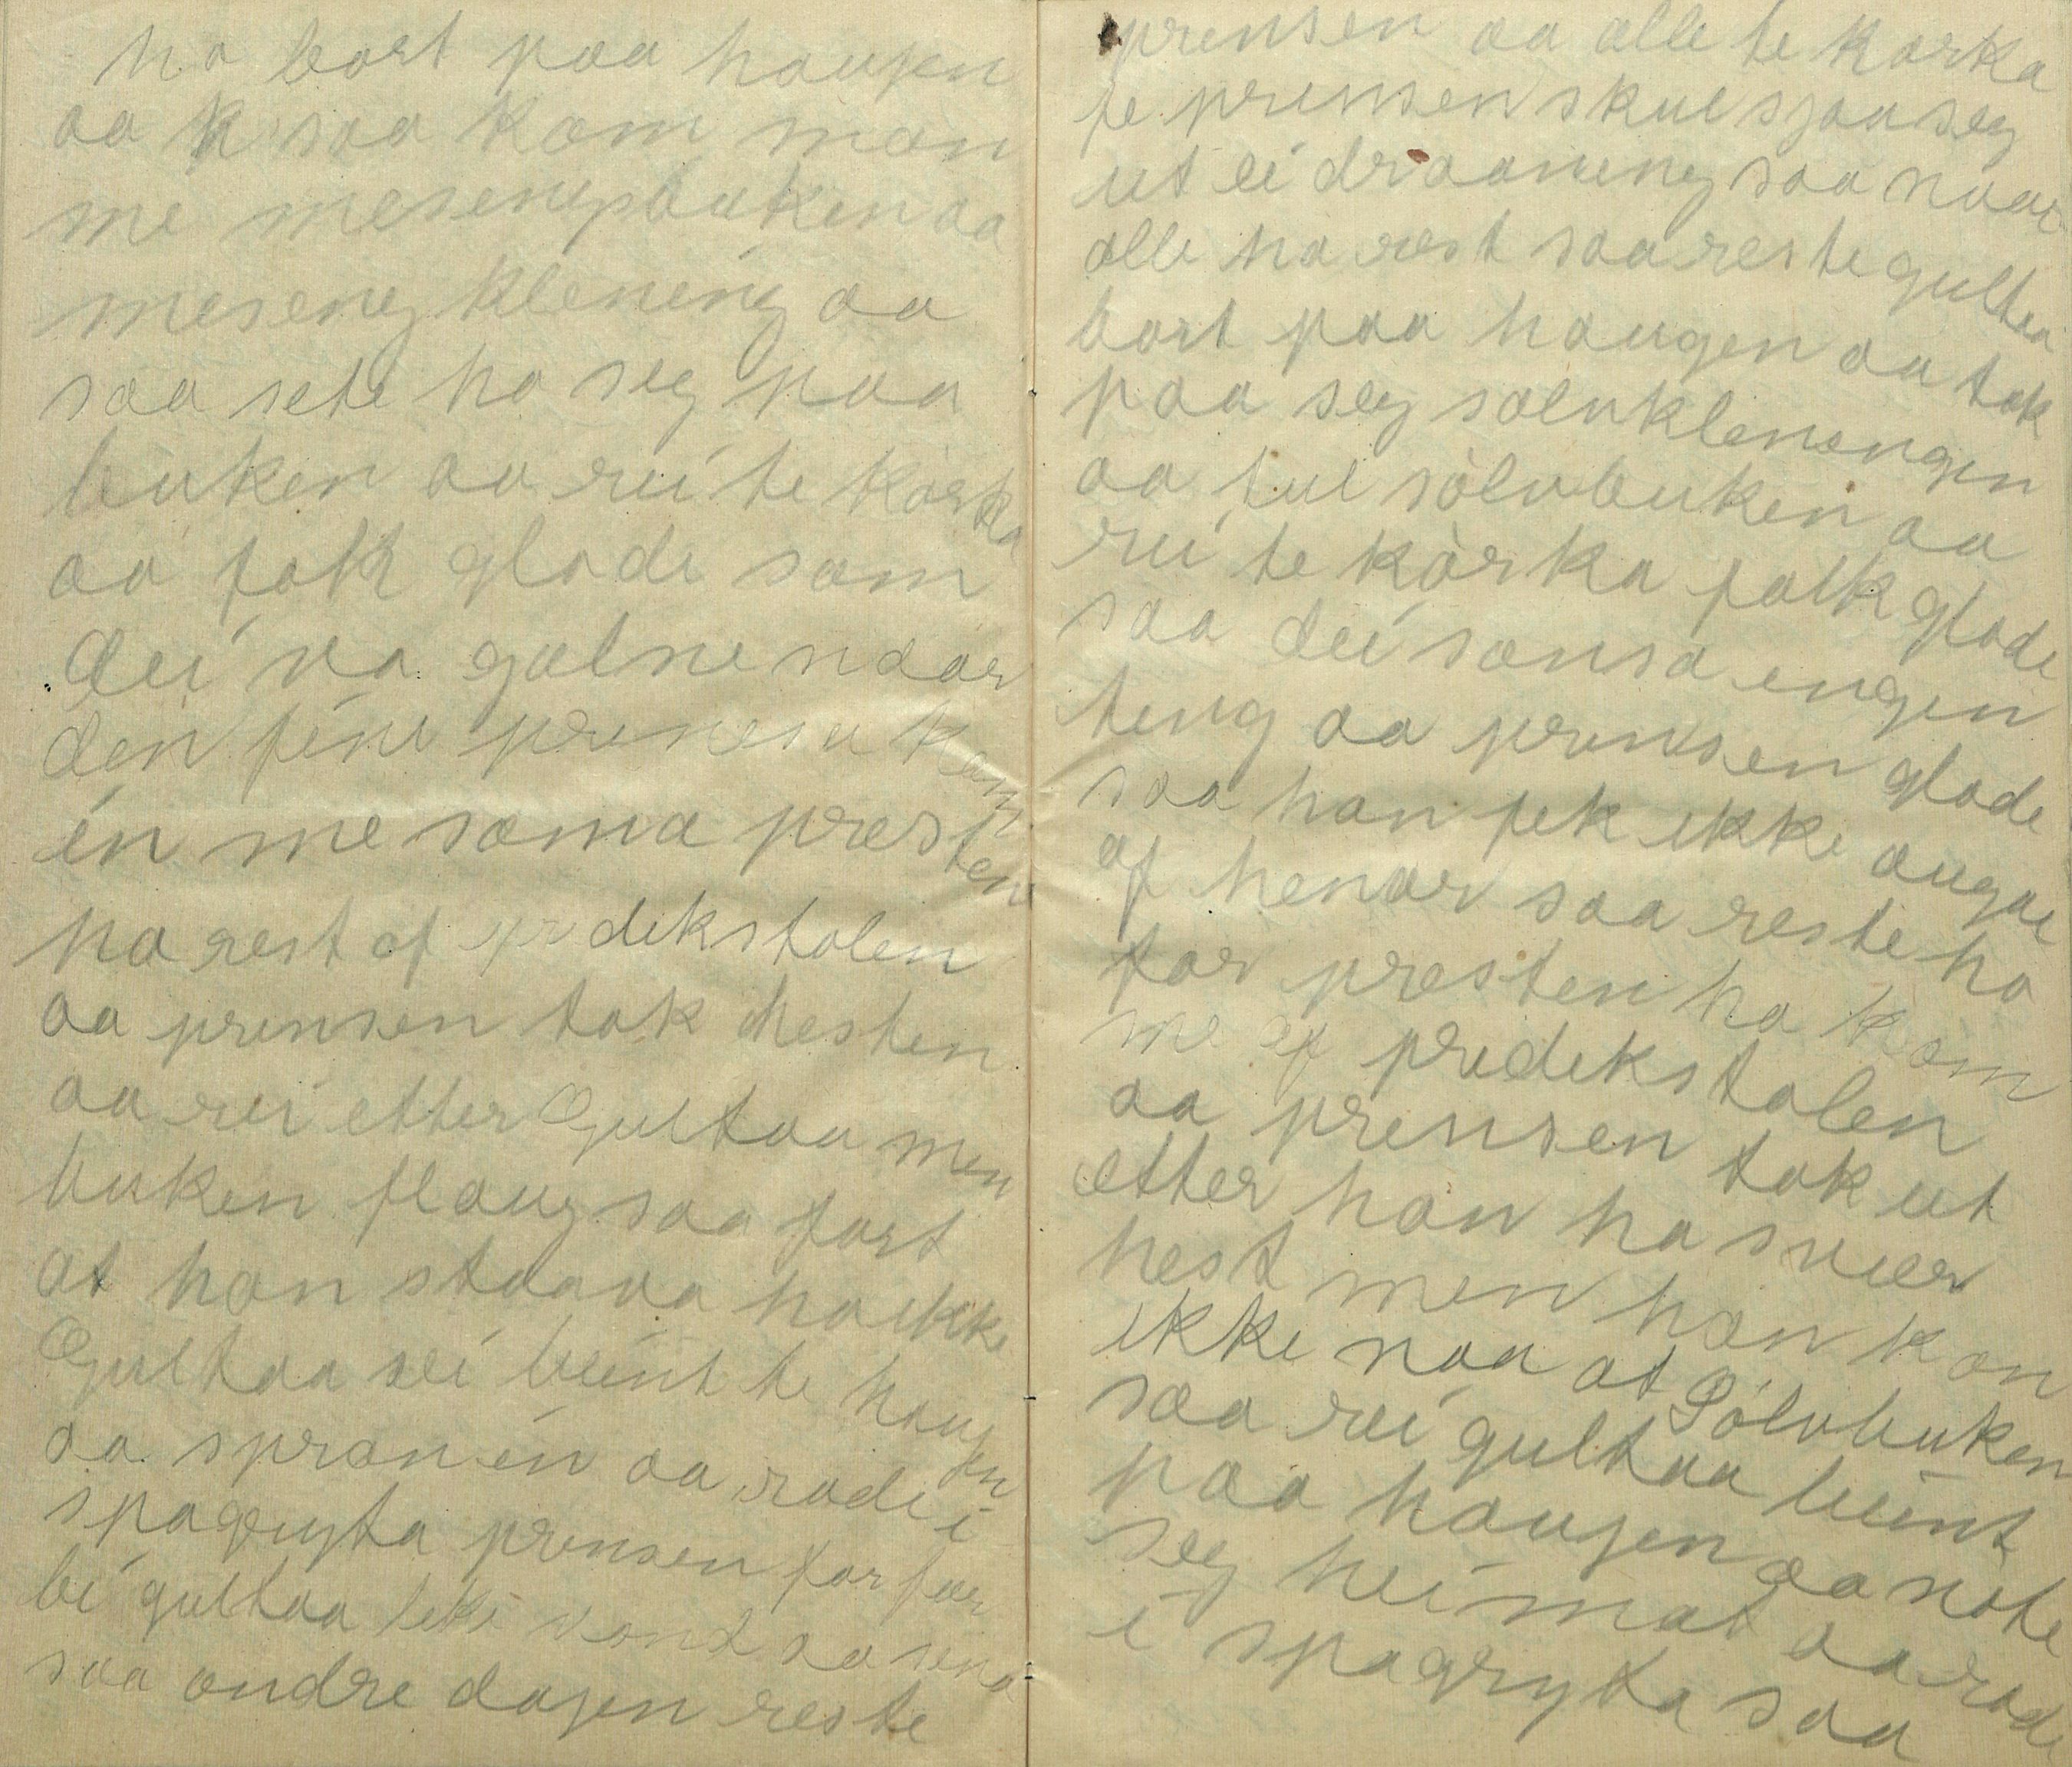 ho bort paa haugen
aa saa kom man
me mesengbuken aa
meseng klening aa
saa sete ho seg paa
buken aa rei te kørka
aa folk glode som
dei va galne naar
den fine prinsesa kom
in me soma presten
ha rest af predikstolen
aa prinsen tok hesten
aa rei etter Gultaa men
buken flaug saa fort
at han staava ha ikke
Gultaa rei beint te haugen
aa spran in aa rode i
spagryta prinsen for
bei gultaa like vond aa sina
saa andre dagen reste
prinsen aa alle te kørka
fe prinsen skul sjaa seg
ut ei draaning saa naar
alle ha rest saa reste gultaa
bort paa haugen aa tok
paa seg sølvkleningen
aa tul sølvbuken aa
rei te kørka folk glode
saa dei sansa ingen
ting aa prinsen glode
saa han fek ikke augae
af henar saa reste ho
før presten ha kom
me af predikstolen
aa prinsen tok ut
etter han ha snier
hest men han kan
ikke naa at Sølvbuken
saa rei gultaa beint
paa haugen aa note
seg heimat aa rode
i spagryta saa